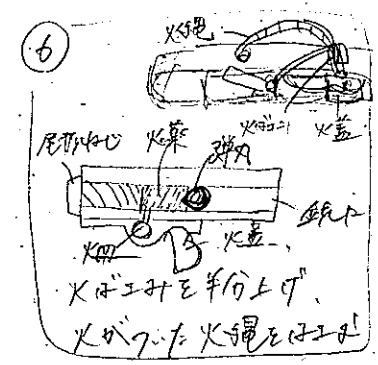 ⑥
火縄
火ばさみ
火蓋
尾せんねじ
火薬
弾丸
銃口
火皿
火蓋
火ばさみを半分上げ、
火がついた火縄をはさむ